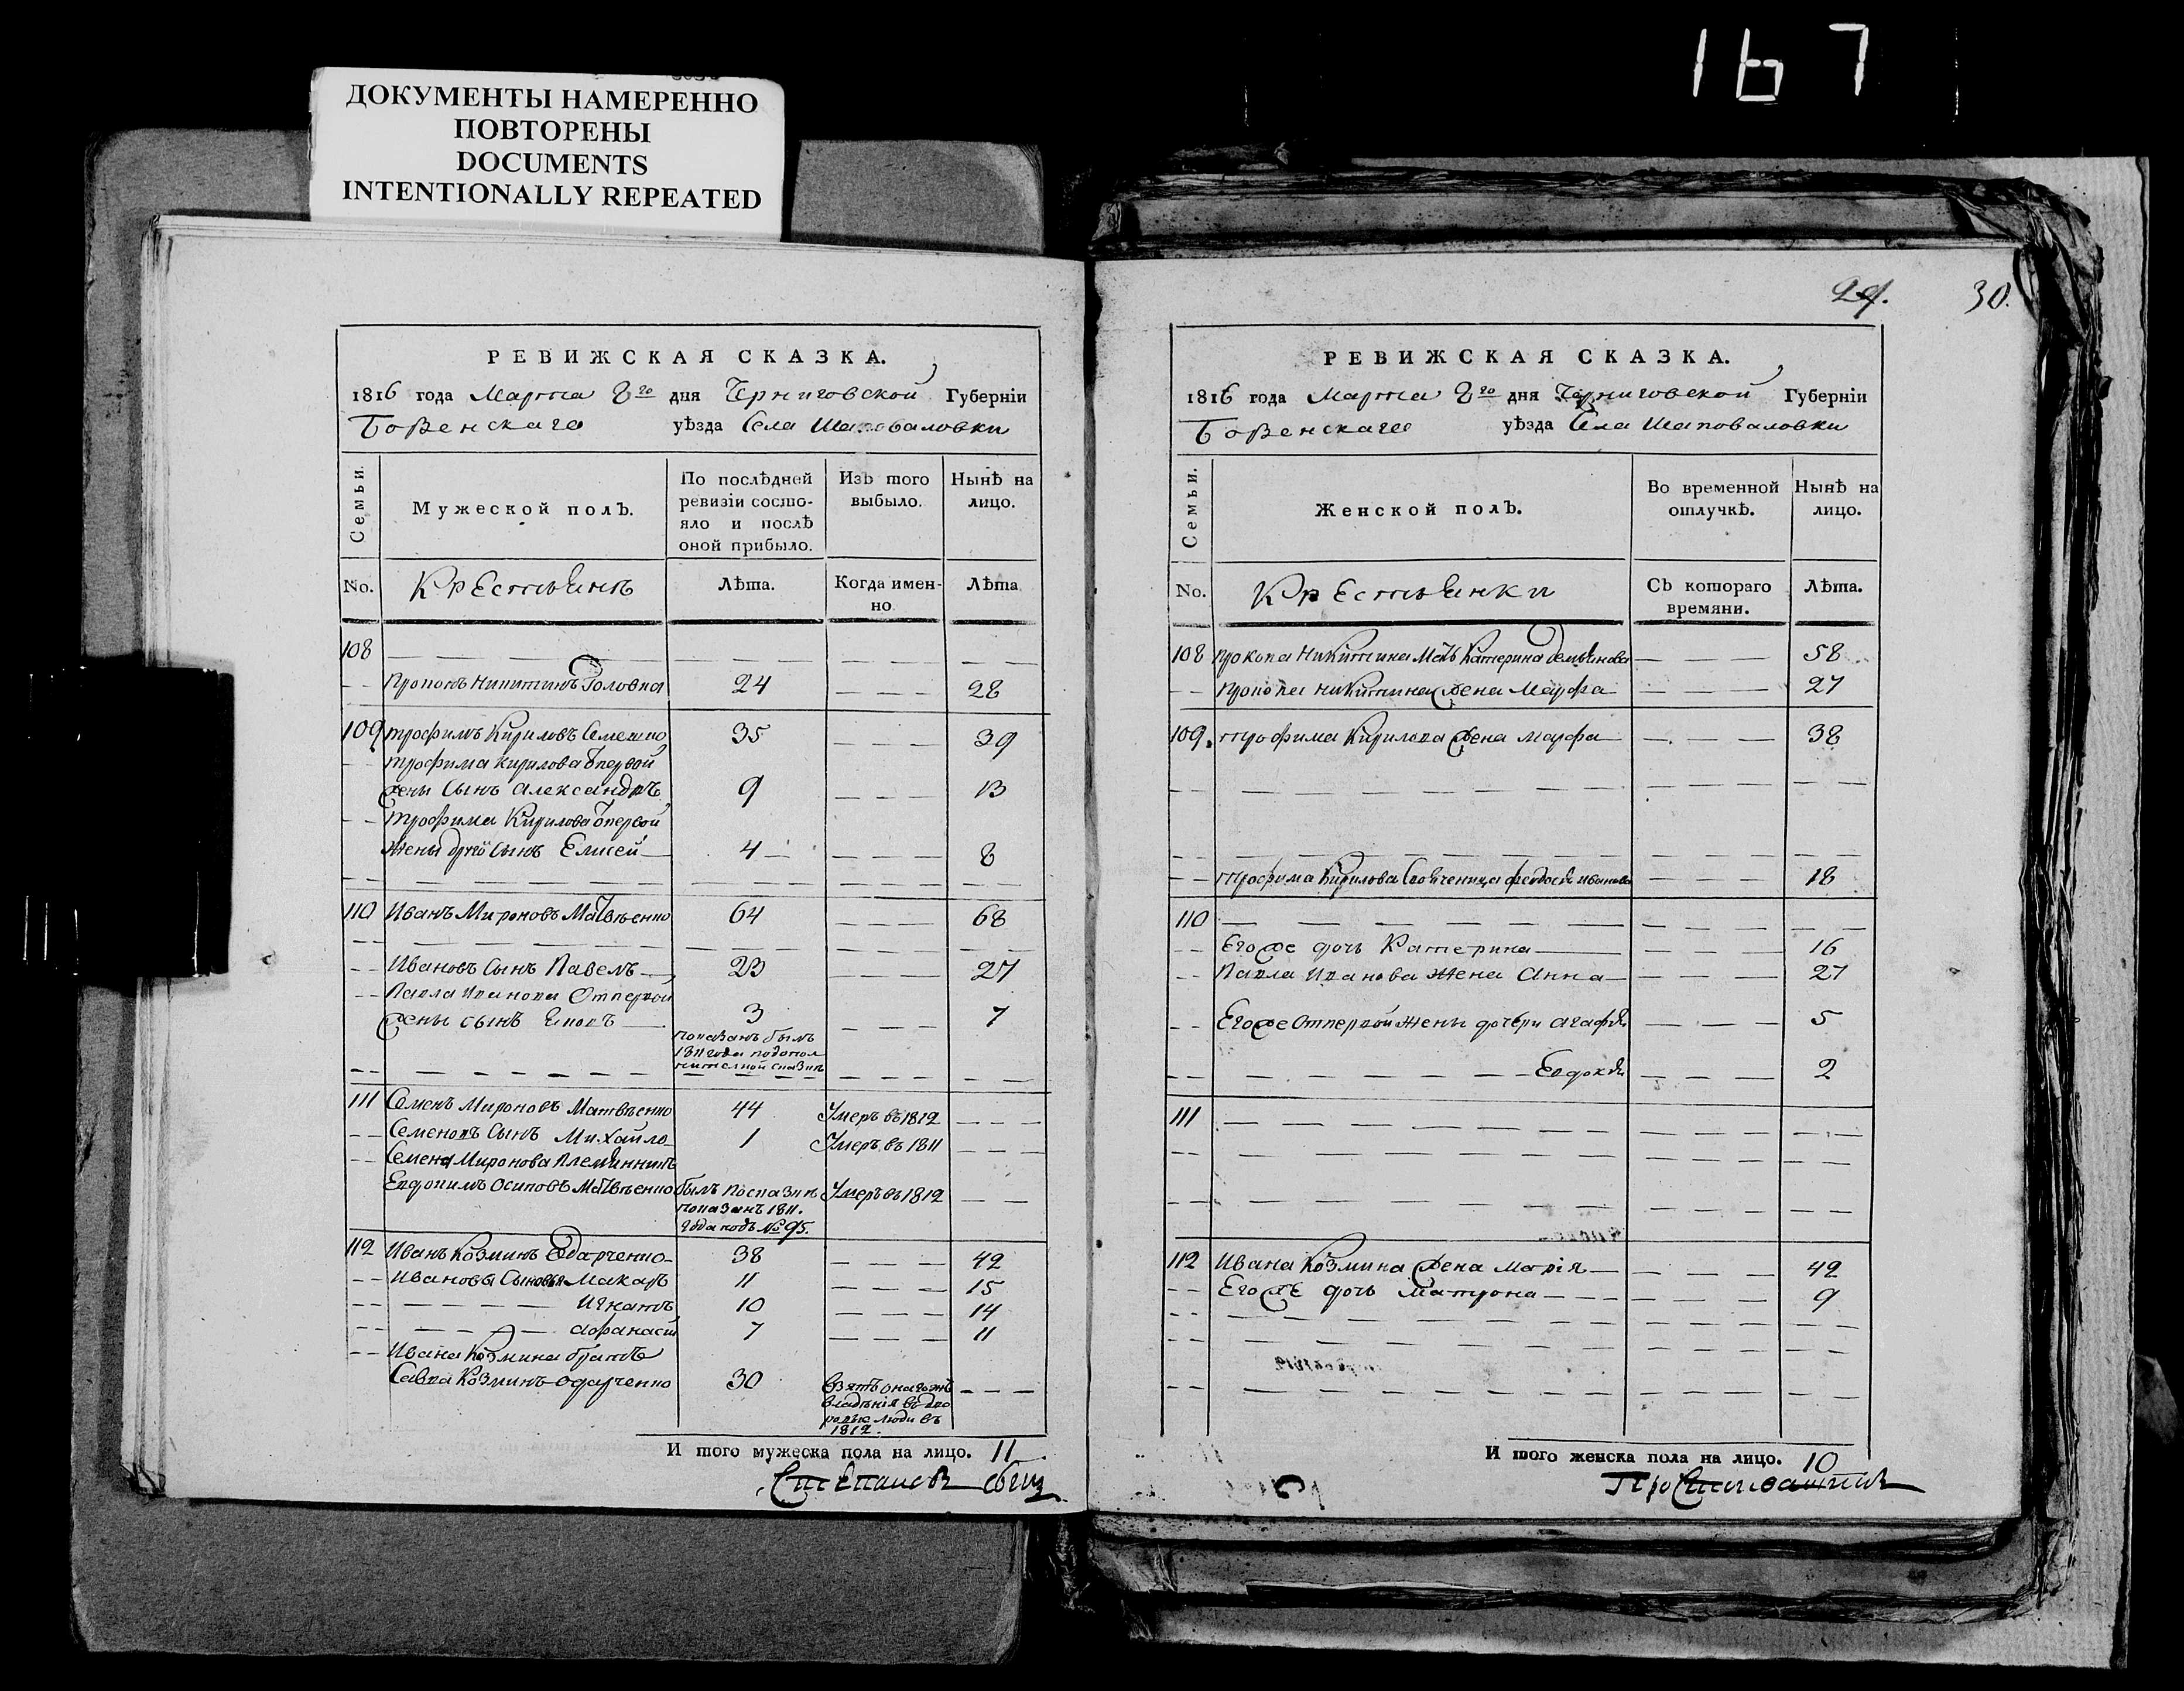 167
ДОКУМЕНТЫ НАМЕРЕННО
ПОВТОРЕНЫ
DOCUMENTS
INTENTIONALLY REPEATED
РЕВИЖСКАЯ СКАЗКА.
1816 года Марта 8го дня Черниговской Губерніи
Борзенскаго уѣзда Села Шаповаловки
Семьи.
Мужеской полъ.
По послѣдней ревизіи состояло и послѣ оной прибыло.
Изъ того выбыло.
Нынѣ на лицо.
No. Крестьянъ Лѣта. Когда именно Лѣта
108
Прокопъ Никитинъ Головка 24 28
109 Трофимъ Кириловъ Семешко 35 39
Трофима Кирилова отпервой
жены Сынъ Александръ 9 13
Трофима Кирилова отпервой
жены другой Сынъ Елисей 4 8
110 Иванъ Мироновъ Матвѣенко 64 68
Ивановъ Сынъ Павелъ 23 27
Павла Иванова Отпервой
жены сынъ 3 7
показанъ былъ
1811 года подопол
нителной сказкѣ
111 Семенъ Мироновъ Матвѣенко 44 Умеръ въ 1812
Семеновъ Сынъ Михайло 1 Умеръ въ 1811
Семена Миронова Племянникъ
Евдокимъ Осиповъ Матвѣенко былъ посказкѣ Умеръ въ 1812
показанъ 1811.
года подъ № 95.
112 Иванъ Козминъ Одарченко 38 42
Ивановы Сыновья Макаръ 11 15
Игнатъ 10 14
Афанасій 7 11
Ивана Козмина братъ
Савва Козминъ Одарченко 30 Взятъ онагожъ
владѣнія въ дво
ровые люди въ
1812.
И того мужеска пола на лицо. 11
29. 30.
РЕВИЖСКАЯ СКАЗКА.
1816 года Марта 8го дня Черниговской Губерніи
Борзенскаго уѣзда Села Шаповаловки
Семьи.
Женской полъ.
Во временной отлучкѣ.
Нынѣ на лицо.
No. Крестьянки Съ котораго времяни. Лѣта.
108 Прокопа Никитина Мать Катерина Демьянова 58
Прокопа Никитина жена Марфа 27
109. Трофима Кирилова жена Марфа 38
Трофима Кирилова Своячениця Феодосія Иванова 18
110
Его же дочь Катерина 16
Павла Иванова жена Анна 27
Его же Отпервой жены дочери Агафія 5
Евдокія 2
111
112 Ивана Козмина жена Марія 42
Его же дочь Матрона 9
И того женска пола на лицо. 10